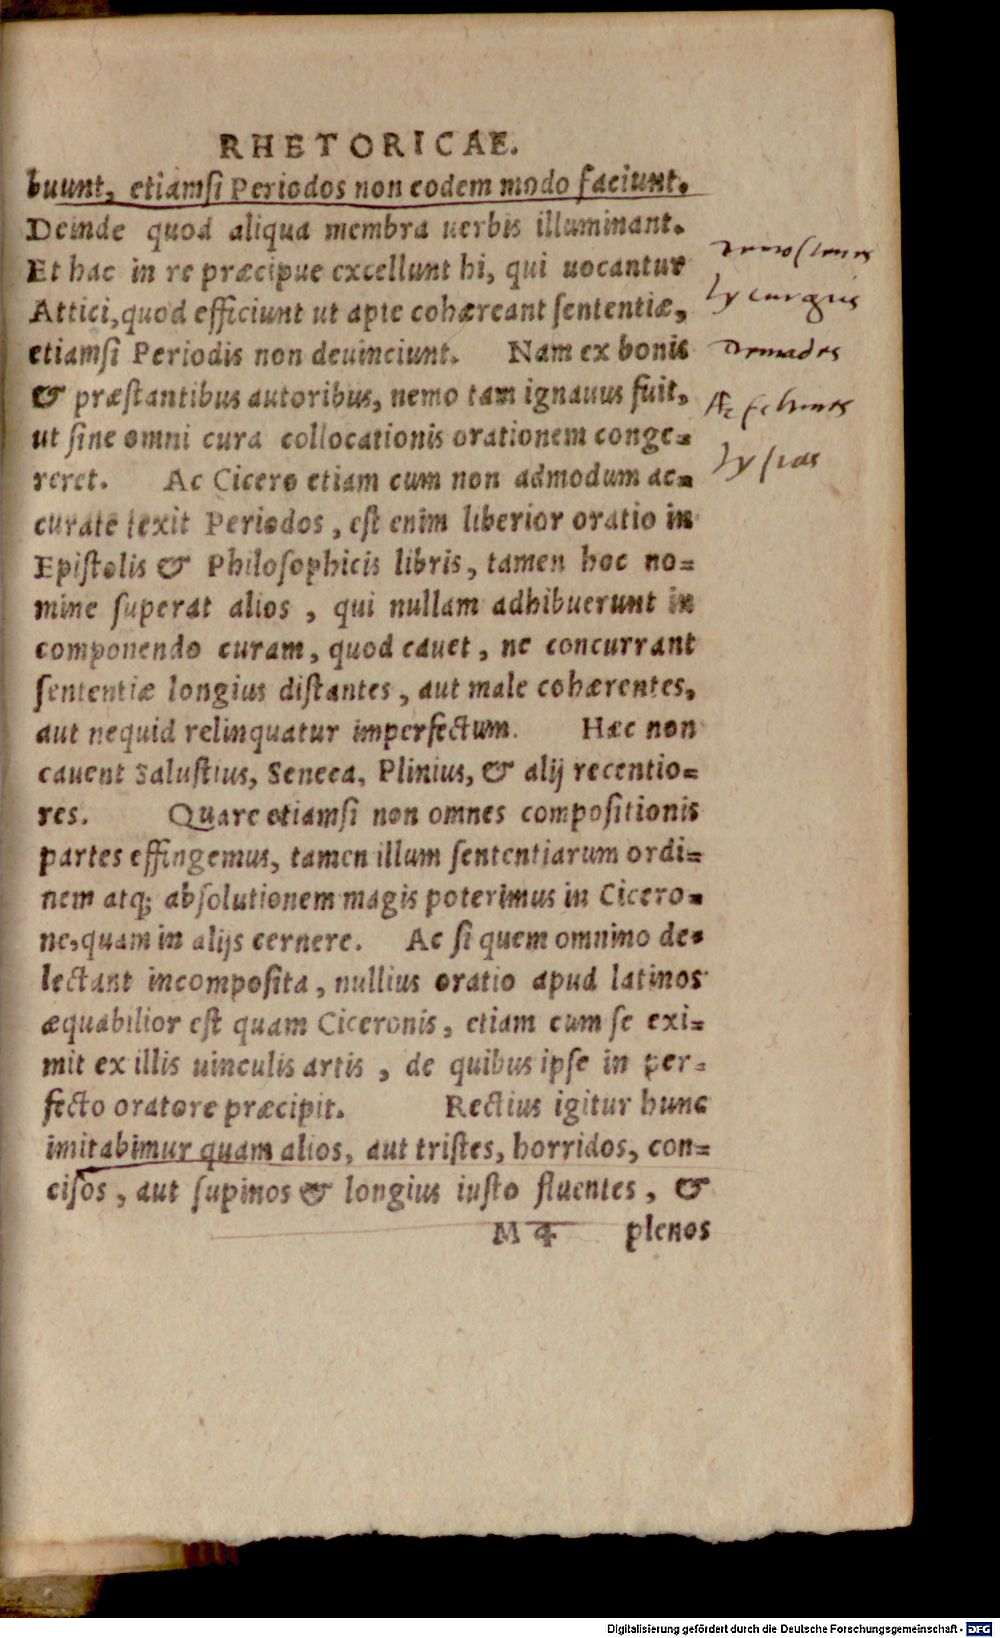 RHETORICAE.
buunt, etiamſi Periodos non eodem modo faciunt.
Deinde quod aliqua membra uerbis illuminant.
Et hac in re præcipue excellunt hi, qui uocantur
Attici, quod efficiunt ut apte cohæreant ſententiæ,
etiamſi Periodis non deuinciunt. Nam ex bonis
& præſtantibus autoribus, nemo tam ignauus fuit,
ut ſine omni cura collocationis orationem conge=
reret. Ac Cicero etiam cum non admodum ac=
curate texit Periodos, eſt enim liberior oratio in
Epiſtolis & Philoſophicis libris, tamen hoc no=
mine ſuperat alios, qui nullam adhibuerunt in
componendo curam, quod cauet, ne concurrant
ſententiæ longius diſtantes, aut male cohærentes,
aut nequid relinquatur imperfectum. Hæc non
cauent Saluſtius, Seneca, Plinius, & alij recentio=
res. Quare etiamſi non omnes compoſitionis
partes effingemus, tamen illum ſententiarum ordi=
nem atq; abſolutionem magis poterimus in Cicero=
ne, quam in alijs cernere. Ac ſi quem omnino de=
lectant incompoſita, nullius oratio apud latinos
æquabilior eſt quam Ciceronis, etiam cum ſe exi=
mit ex illis uinculis artis, de quibus ipſe in per=
fecto oratore præcipit. Rectius igitur hunc
imitabimur quam alios, aut triſtes, horridos, con=
ciſos, aut ſupinos & longius iuſto fluentes, &
M 4 plenos
Demoſtenes
Lycurgus
Demades
Æſchines
Lyſias
Digitalisierung gefördert durch die Deutsche Forschungsgemeinschaft - DFG